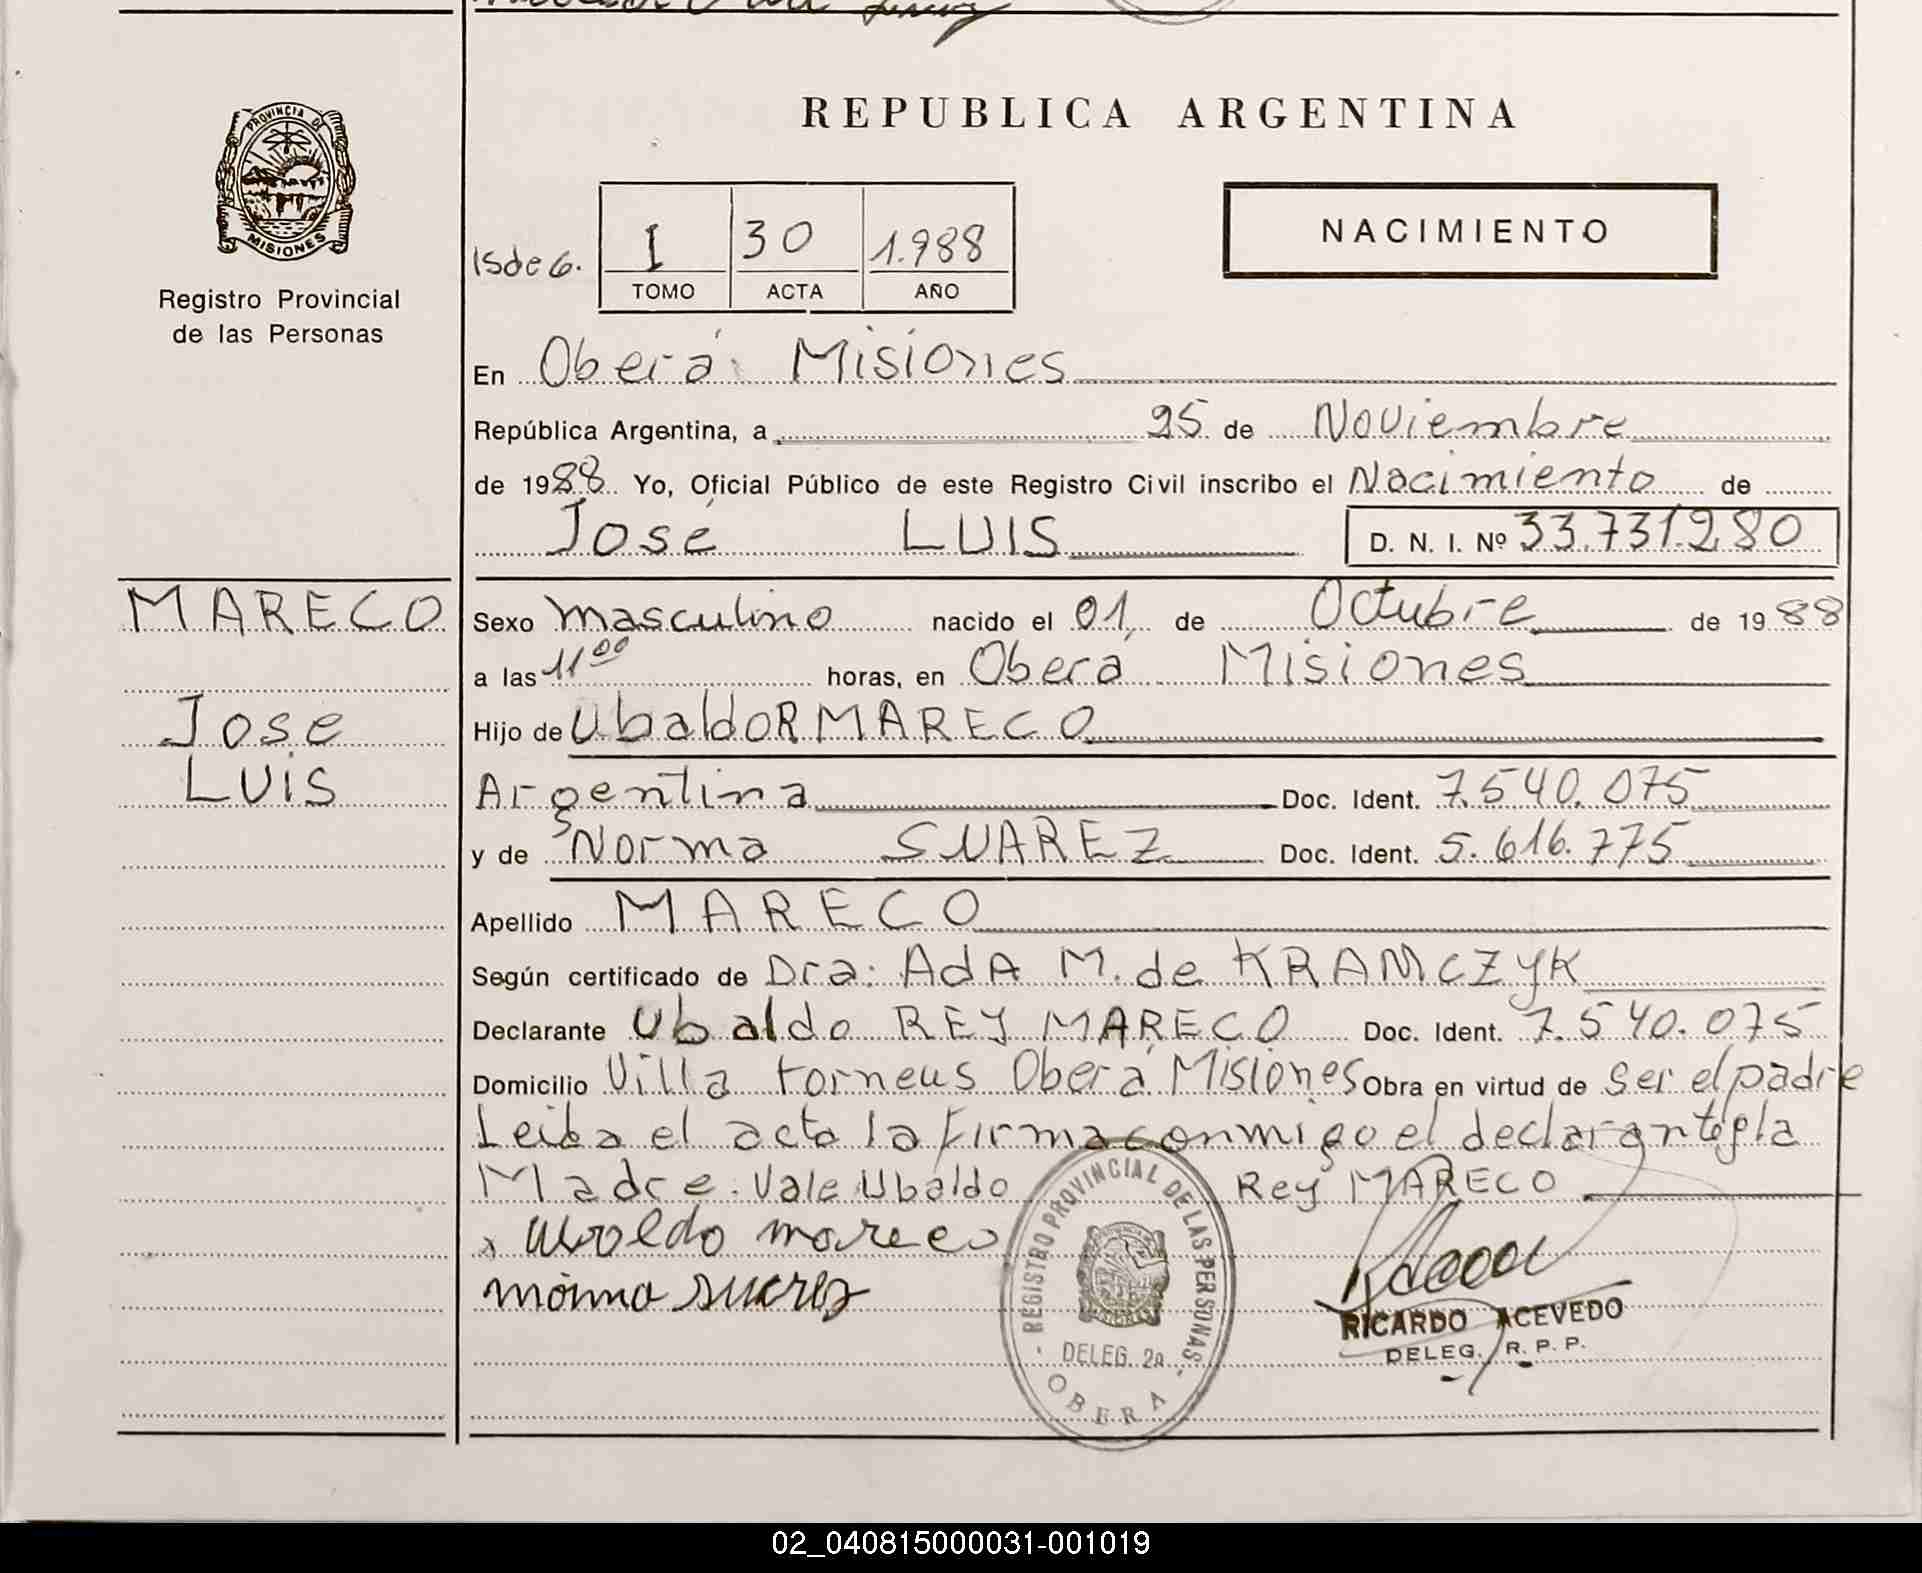 PROVINCIA DE
MISIONES
Registro Provincial
de las Personas
REPUBLICA ARGENTINA
NACIMIENTO
I 30 1.988
TOMO ACTA AÑO
En Oberá Misiones
República Argentina, a 25 de Noviembre
de 1988 Yo, Oficial Público de este Registro Civil inscribo el Nacimiento de
José LUIS D. N. I. Nº 33.731.280
MARECO
Jose
Luis
Sexo masculino nacido el 01 de Octubre de 1988
a las 11 00 horas, en Oberá Misiones
Hijo de UbaldoR MARECO
Argentina Doc. Ident. 7.540.075
y de Norma SUAREZ Doc. Ident. 5.616.775
Apellido MARECO
Según certificado de Dra: AdA M. de KRAMCZYK
Declarante Ubaldo REY MARECO Doc. Ident. 7.540.075
Domicilio Villa torneus Oberá Misiones Obra en virtud de ser el padre
Leida el acta la firma conmigo el declarante y la
Madre. Vale Ubaldo Rey MARECO
x Ubaldo mareco
suarez
REGISTRO PROVINCIAL DE LAS PERSONAS
DELEG. 2a
OBERA
RICARDO ACEVEDO
DELEG. R. P. P.
02_040815000031-001019